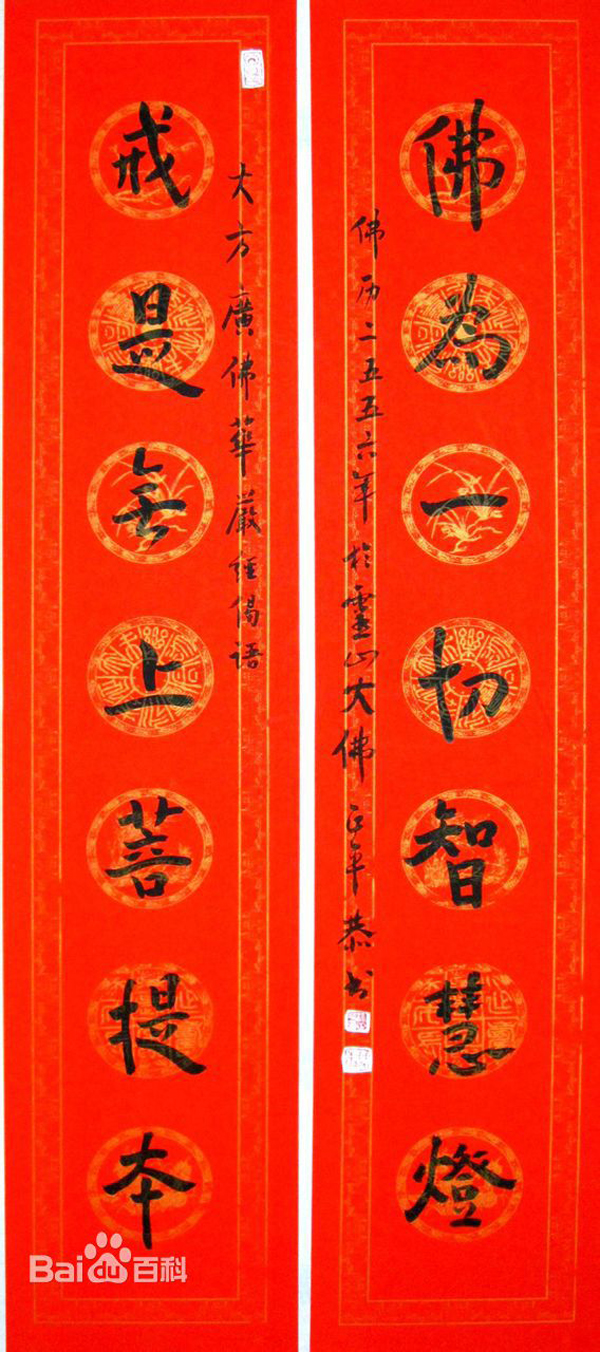 佛為一切智慧燈
佛历二五五六年於靈山大佛 恭书
大方廣佛華嚴經偈语
戒是無上菩提本
Bai du 百科